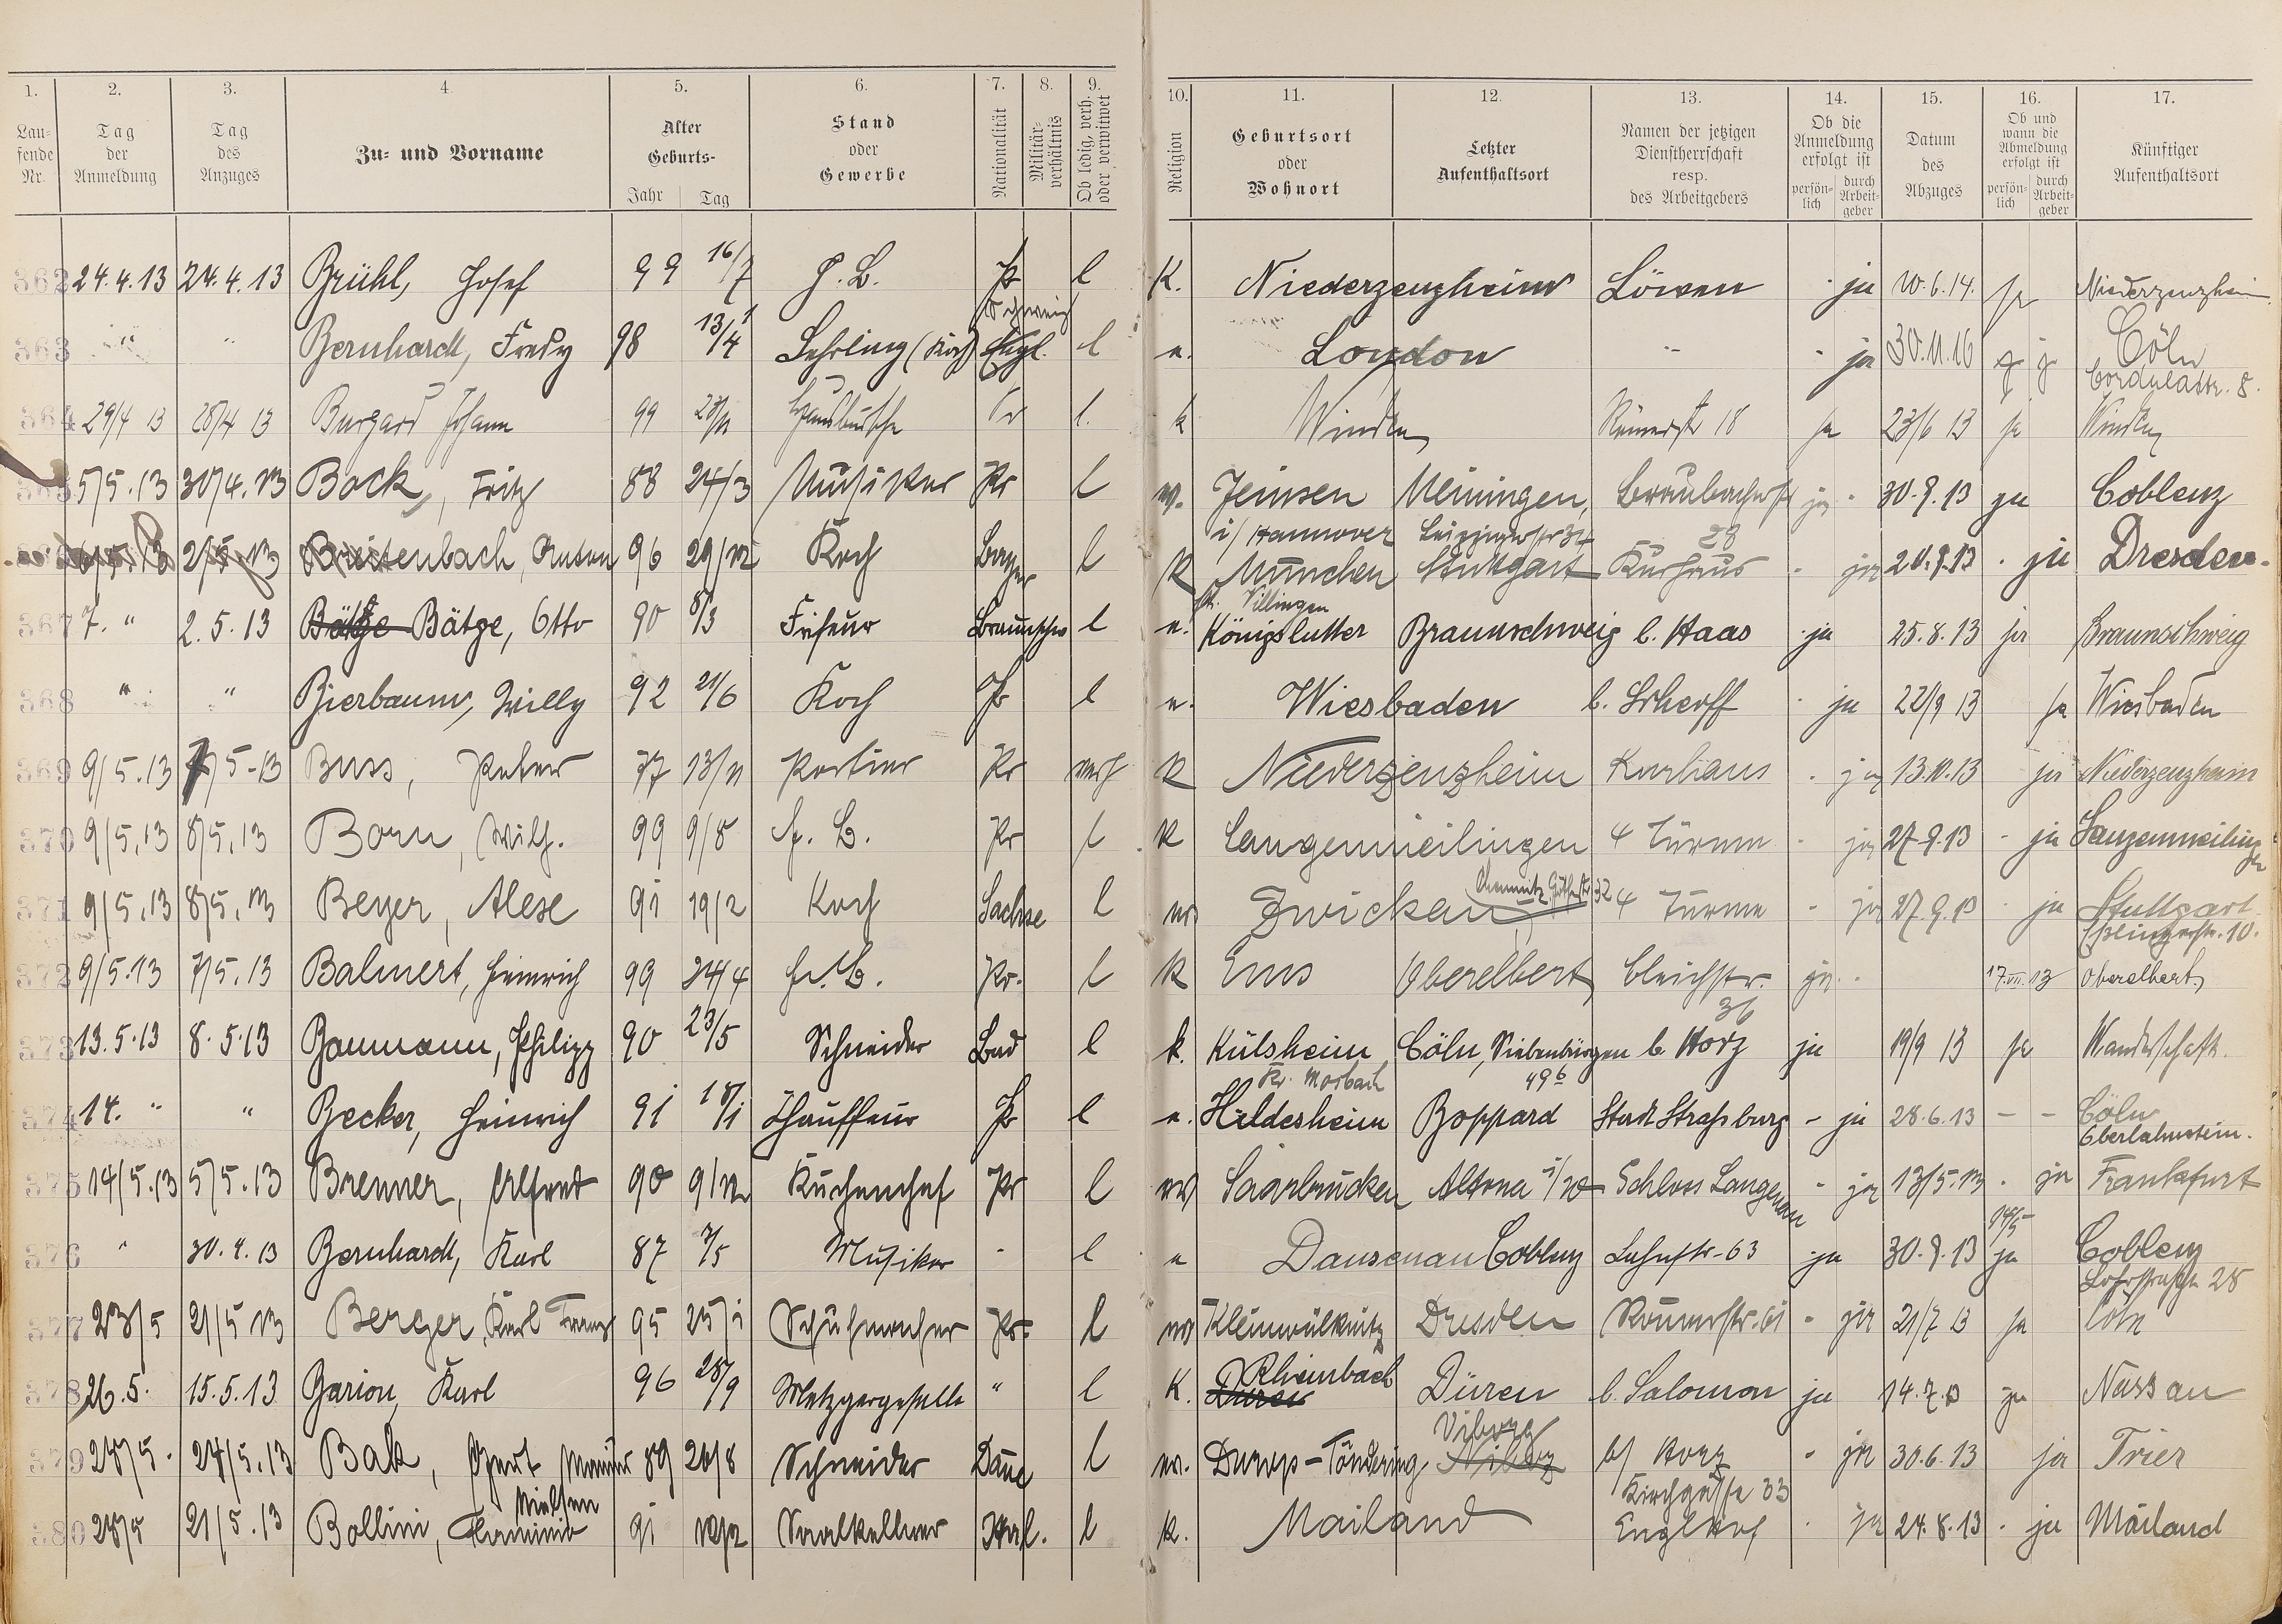 1. 2. 3. 4. 5. 6. 7. 8. 9. 10. 11. 12. 13. 14. 15. 16. 17.
Lau-fende Nr. Tag der Anmeldung Tag des Anzuges Zu- und Vorname Alter Geburts- Jahr Tag Stand oder Gewerbe Nationalität Militär-verhältnis Ob ledig, verh. oder verwitwet Religion Geburtsort oder Wohnort Letzter Aufenthaltsort Namen der jetzigen Dienstherrschaft resp. des Arbeitgebers Ob die Anmeldung erfolgt ist persön-lich durch Arbeit-geber Datum des Abzuges Ob und wann die Abmeldung erfolgt ist persön-lich durch Arbeit-geber Künftiger Aufenthaltsort
362 24.4.13 24.4.13 Brühl, Josef 99 16/7 H. B. Pr l K. Niederzeuzheim Löwen - ja 10.6.14. ja Niederzeuzheim
Schweiz
363 " " Bernhardt, Fredy 98 13/4 Lehrling (Koch) Engl. l e. London " - ja 30.11.16 Cöln
Cordulastr. 8.
364 29/4 13 28/4 13 Burgard Johann 99 28/11 Hausbursche Pr l. k Winden Römerstr 18 ja 23/6 13 ja Winden
365 5/5.13 30/4.13 Bock, Fritz 88 24/3 Musiker Pr l ev. Jeinsen Meiningen, Braubacherstr ja - 30.9.13 ja Coblenz
i/Hannover Leipzigerstr 34 28
6/5.13 2/5.13 Breitenbach, Anton 96 29/12 Koch Bayer l K München Stuttgart Kurhaus - ja 20.9.13 - ja Dresden.
Villingen
367 7. " 2.5.13 Bätge Bätge, Otto 90 8/3 Friseur Braunschw l e. Königslutter Braunschweig b. Haas - ja 25.8.13 ja Braunschweig
368 " " Bierbaum, Willy 92 21/6 Koch Pr l e. Wiesbaden b. - ja 22/9 13 ja Wiesbaden
369 9/5.13 7/5-13 Buss, Peter 77 13/11 Portier Pr verh K Niederzeuzheim Kurhaus - ja 13.10.13 ja Niederzeuzheim
370 9/5.13 8/5.13 Born, Wilh. 99 9/8 H. B. Pr l K Langenmeilingen 4 Türme - ja 27.9.13 - ja Langenmeilingen
Chemnitz 32
371 9/5.13 8/5.13 Beyer, Alese 91 19/2 Koch Sachse l ev Zwickau 4 Türme - ja 27.9.13 - ja Stuttgart
Esslingerstr. 10.
372 9/5.13 7/5.13 Balmert, Heinrich 99 24/4 H. B. Pr. l K Ems Oberelbert Bleichstr. ja - 17.VII.13 Oberelbert
36
373 13.5.13 8.5.13 Baumann, Philipp 90 23/5 Schneider Bad l k. Külsheim Cöln, Siebenbürgen b. Horz ja 19/9 13 ja Wanderschaft.
Kr. Mosbach 49 6
374 14. " " Becker, Heinrich 91 18/1 Chauffeur Pr l e. Hildesheim Boppard Stadt Straßburg - ja 28.6.13 - - Cöln
Oberlahnstein.
375 14/5.13 5/5.13 Brenner, Alfred 90 9/12 Küchenchef Pr l ev Saarbrücken Altona Schloss Langenau - ja 13/5.13 - ja Frankfurt
14/5
376 " 30.4.13 Bernhardt, Karl 87 7/5 Musiker - l e Dausenau Coblenz Lahnstr. 63 - ja 30.9.13 ja Coblenz
Löhrstrasse 28
377 23/5 21/5 13 Berger, Karl Franz 95 25/1 Schuhmacher Pr. l ev Kleinwülknitz Dresden Römerstr. 61 - ja 21/7 13 ja Cöln
Rheinbach
378 26.5. 15.5.13 Barion, Karl 96 28/9 Metzgergeselle " l K. Düren Düren b. Salomon ja 14.7.13 ja Nassau
Viborg
379 28/5. 24/5.13 Bak, 89 20/8 Schneider Däne l ev. Durup-Töndering b/ Horz - ja 30.6.13 ja Trier
Nielsen Kirchgasse 33
380 28/5 21/5.13 Bollini, 91 12/2 Saalkellner Ital. l k. Mailand Engl. Hof - ja 24.8.13 - ja Mailand